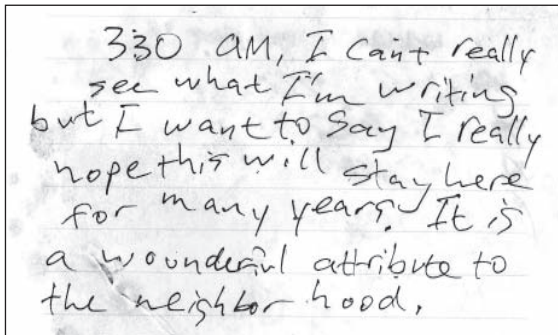 330 AM, I can't really
see what I'm writing
but I want to say I really
hope this will stay here
for many years. It is
a wounderful attribute to
the neighbor hood.